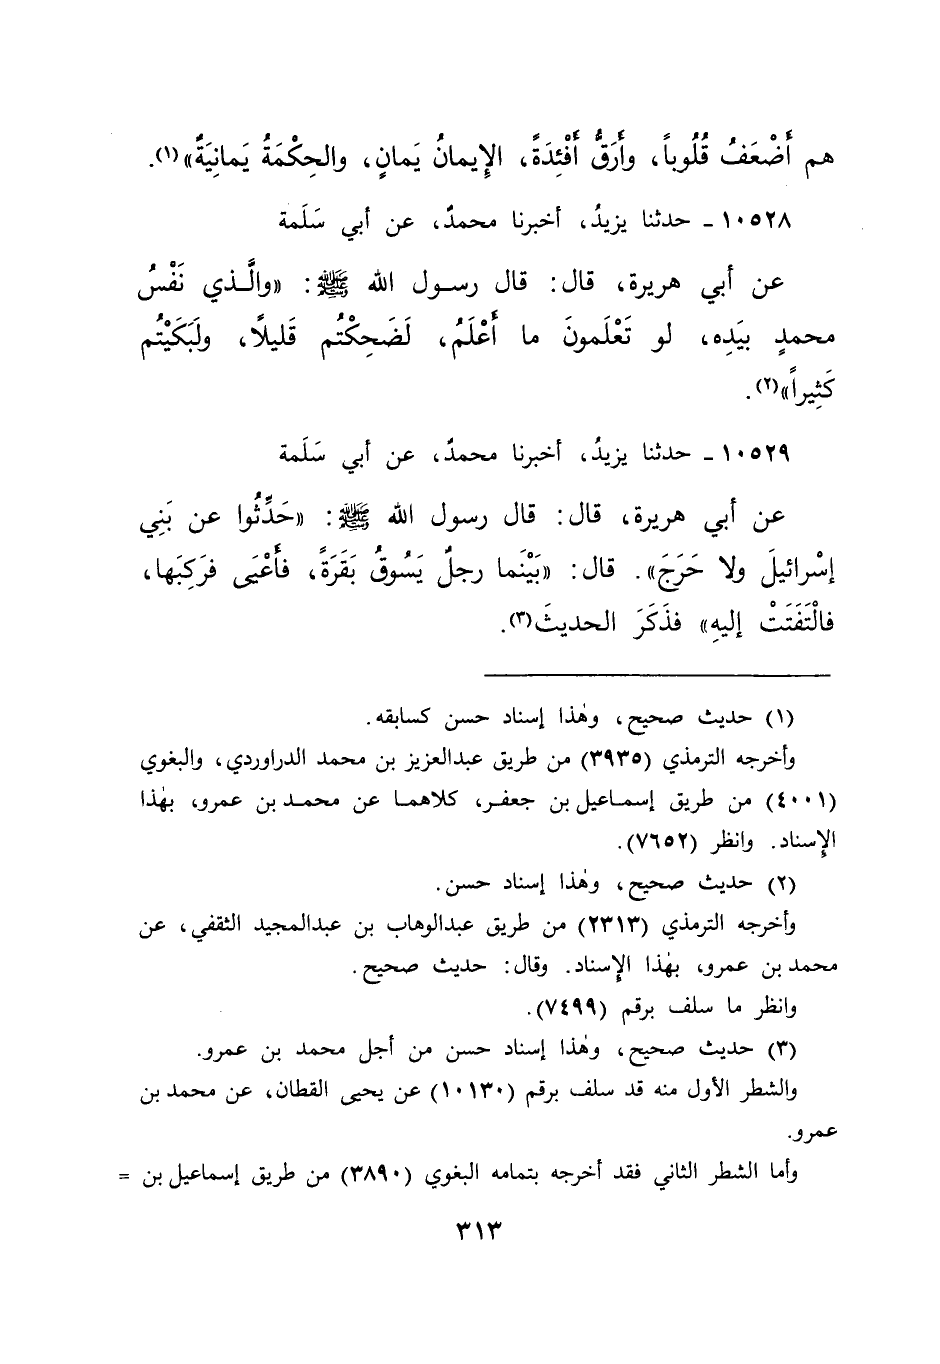 هم أَضْعَفُ قُلُوباً، وأَرَقُّ أَفْئِدَةً، الإِيمانُ يَمانٍ، والحِكْمَةُ يَمانِيَةٌ»(١).
١٠٥٢٨ ـ حدثنا يزيدُ، أخبرنا محمدٌ، عن أبي سَلَمة
عن أبي هريرة، قال: قال رسول الله ﷺ: «والَّذي نَفْسُ
محمدٍ بيَدِه، لو تَعْلَمونَ ما أَعْلَمُ، لَضَحِكْتُم قَليلاً، ولَبَكَيْتُم
كَثِيراً»(٢).
١٠٥٢٩ ـ حدثنا يزيدُ، أخبرنا محمدٌ، عن أبي سَلَمة
عن أبي هريرة، قال: قال رسول الله ﷺ: «حَدِّثُوا عن بَنِي
إسْرائيلَ ولا حَرَجَ». قال: «بَيْنَما رجلٌ يَسُوقُ بَقَرَةً، فأَعْيَى فرَكِبَها،
فالْتَفَتَتْ إليهِ» فذَكَرَ الحديثَ(٣).
(١) حديث صحيح، وهٰذا إسناد حسن كسابقه.
وأخرجه الترمذي (٣٩٣٥) من طريق عبدالعزيز بن محمد الدراوردي، والبغوي
(٤٠٠١) من طريق إسماعيل بن جعفر، كلاهما عن محمد بن عمرو، بهٰذا
الإِسناد. وانظر (٧٦٥٢).
(٢) حديث صحيح، وهٰذا إسناد حسن.
وأخرجه الترمذي (٢٣١٣) من طريق عبدالوهاب بن عبدالمجيد الثقفي، عن
محمد بن عمرو، بهٰذا الإِسناد. وقال: حديث صحيح.
وانظر ما سلف برقم (٧٤٩٩).
(٣) حديث صحيح، وهٰذا إسناد حسن من أجل محمد بن عمرو.
والشطر الأول منه قد سلف برقم (١٠١٣٠) عن يحيى القطان، عن محمد بن
عمرو.
وأما الشطر الثاني فقد أخرجه بتمامه البغوي (٣٨٩٠) من طريق إسماعيل بن =
٣١٣